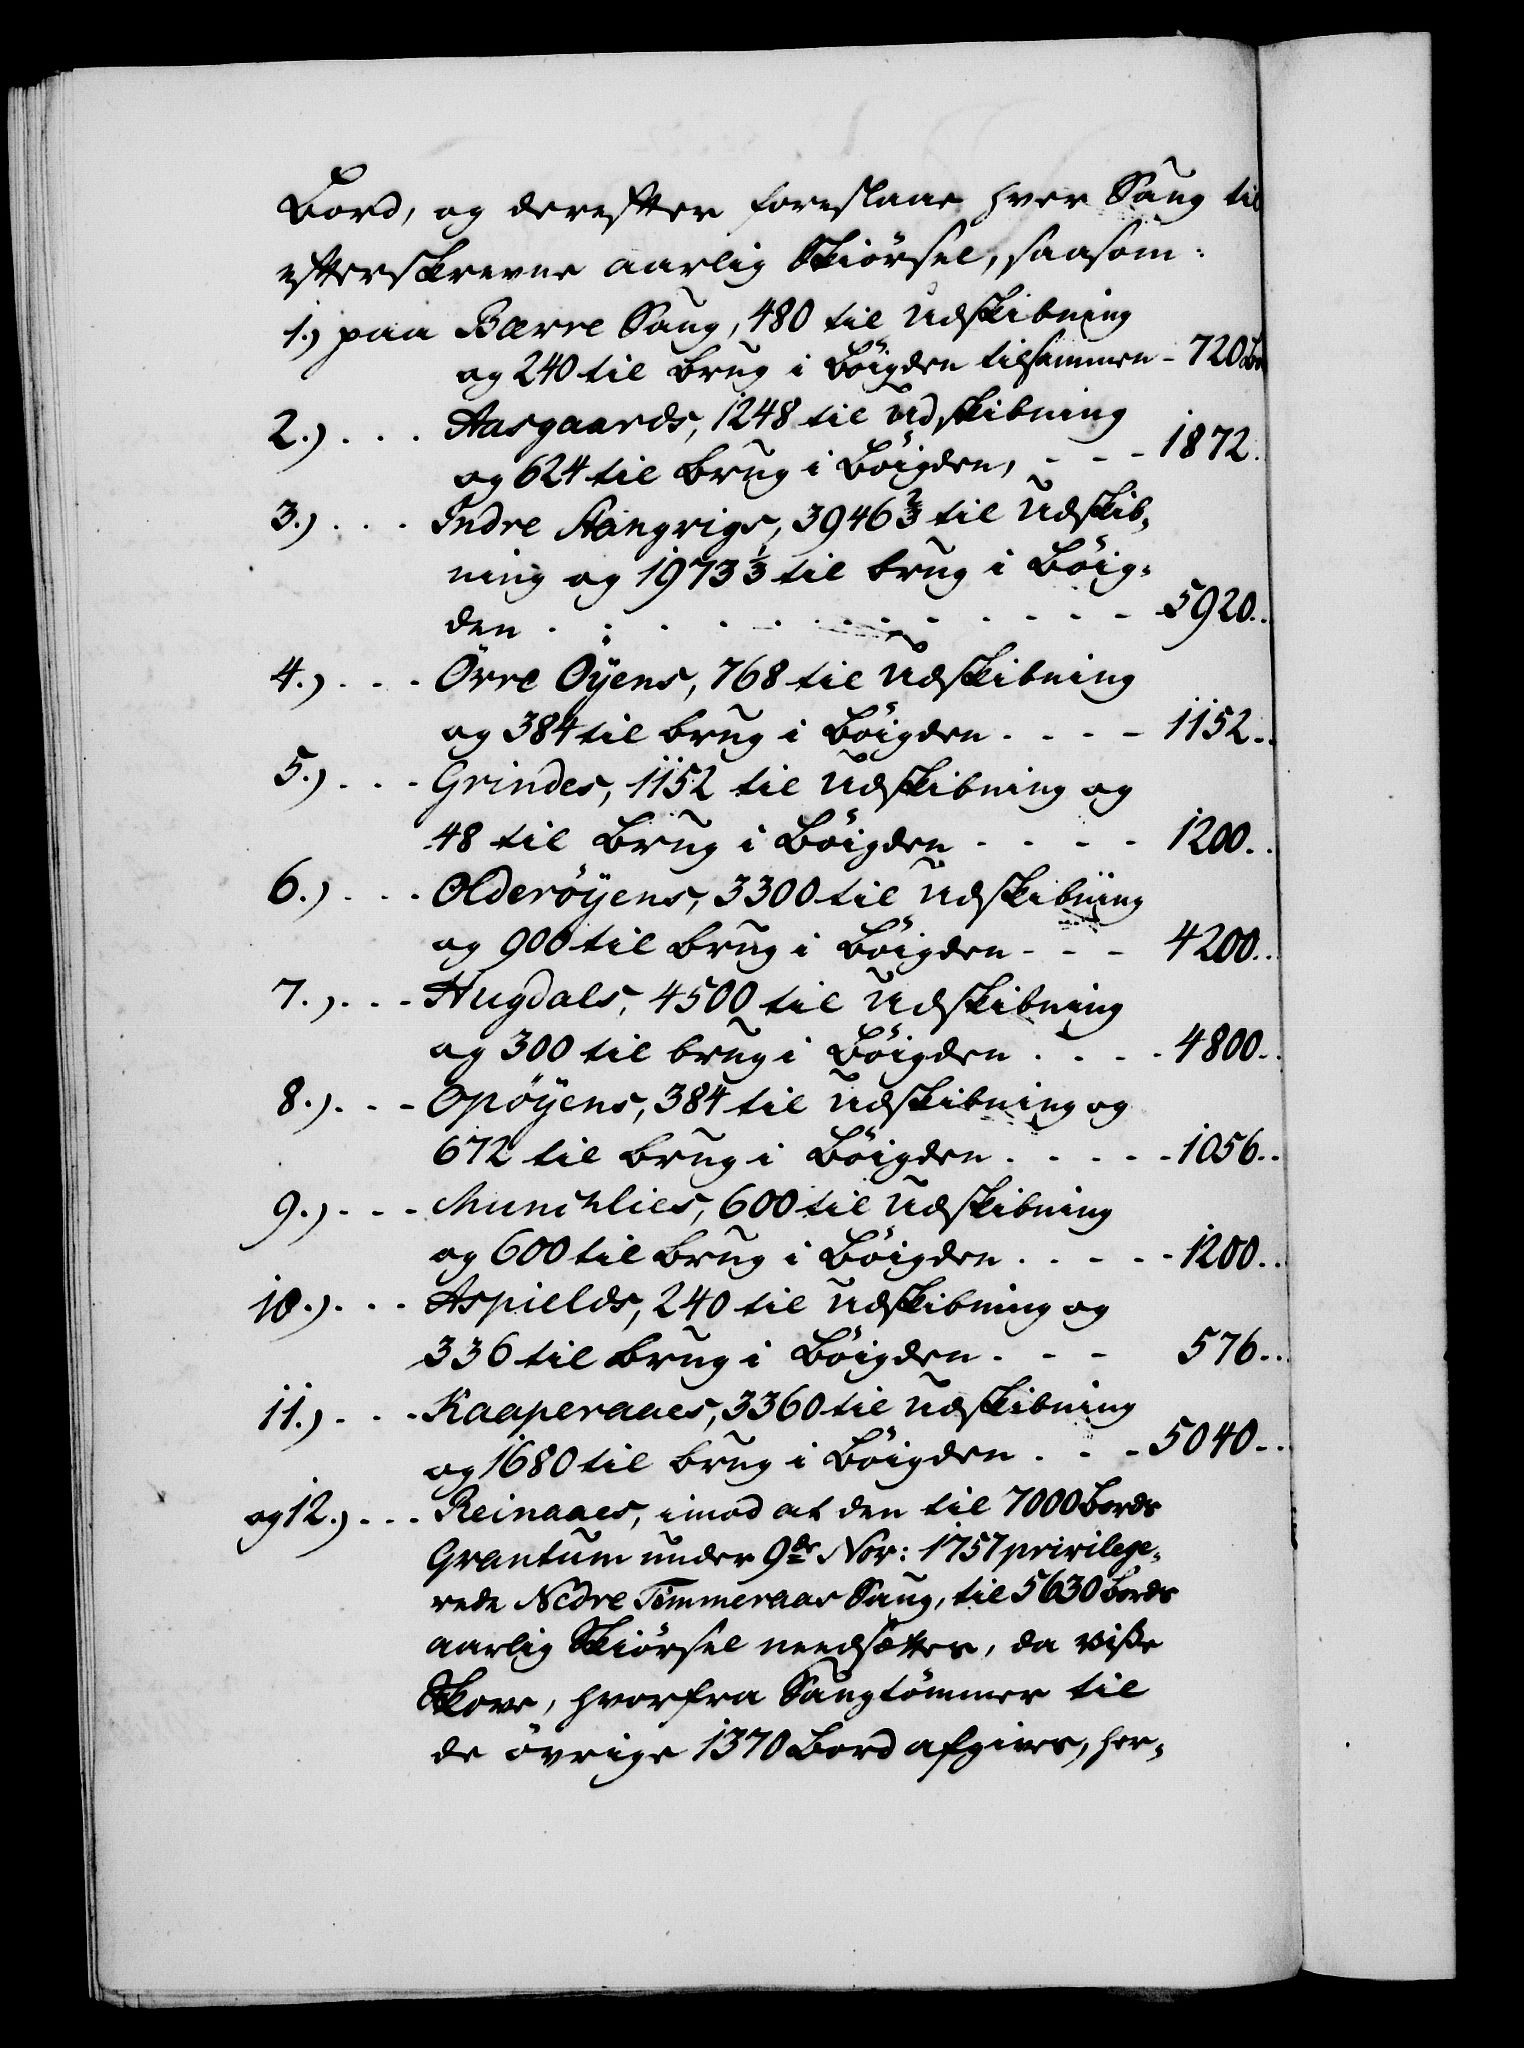 Bord, og derefter foreslaae hver Saug til
efterskrevne aarlig Skiörsel, saasom:
1.) paa Bærre Saug, 480 til Udskibning
og 240 til brug i Böigden tilsammen - 720
2.) . . . Aasgaards, 1248 til Udskibning
og 624 til brug i Böigden, - - - 1872.
3.) . . . Indre 3946 2/3 til Udskib-
ning og 1973 1/3 til brug i Böig-
den . . . . . . . . . . . 5920..
4.) . . . Örre Öÿens, 768 til Udskibning
og 384 til brug i Böigden . . - - 1152..
5.) . . . Grindes, 1152 til Udskibning og
48 til brug i Böigden - - - - 1200..
6.) . . . Olderöÿens, 3300 til Udskibning
og 900 til brug i Böigden - - - 4200..
7.) . . . Hugdals, 4500 til Udskibning
og 300 til brug i Böigden . . . . 4800..
8.) . . . Opöÿens, 384 til Udskibning og
672 til brug i Böigden . . . . - 1056..
9.) . . . 600 til Udskibning
og 600 til brug i Böigden . . . . - 1200..
10.) . . . Aspields, 240 til Udskibning og
336 til brug i Böigden . - - 576...
11.) . . . Kaaperaaes, 3360 til Udskibning
og 1680 til brug i Böigden . . - 5040..
og 12.) . . . Reinaaes, imod at den til 7000 Bords
Qvantum under 9de Nov: 1757 privilege-
rede Nedre Tömmeraas Saug, til 5630 Bords
aarlig Skiörsel needsættes, da visse
Skove, hvorfra Saugtömmer til
de övrige 1370 Bord afgives, her-